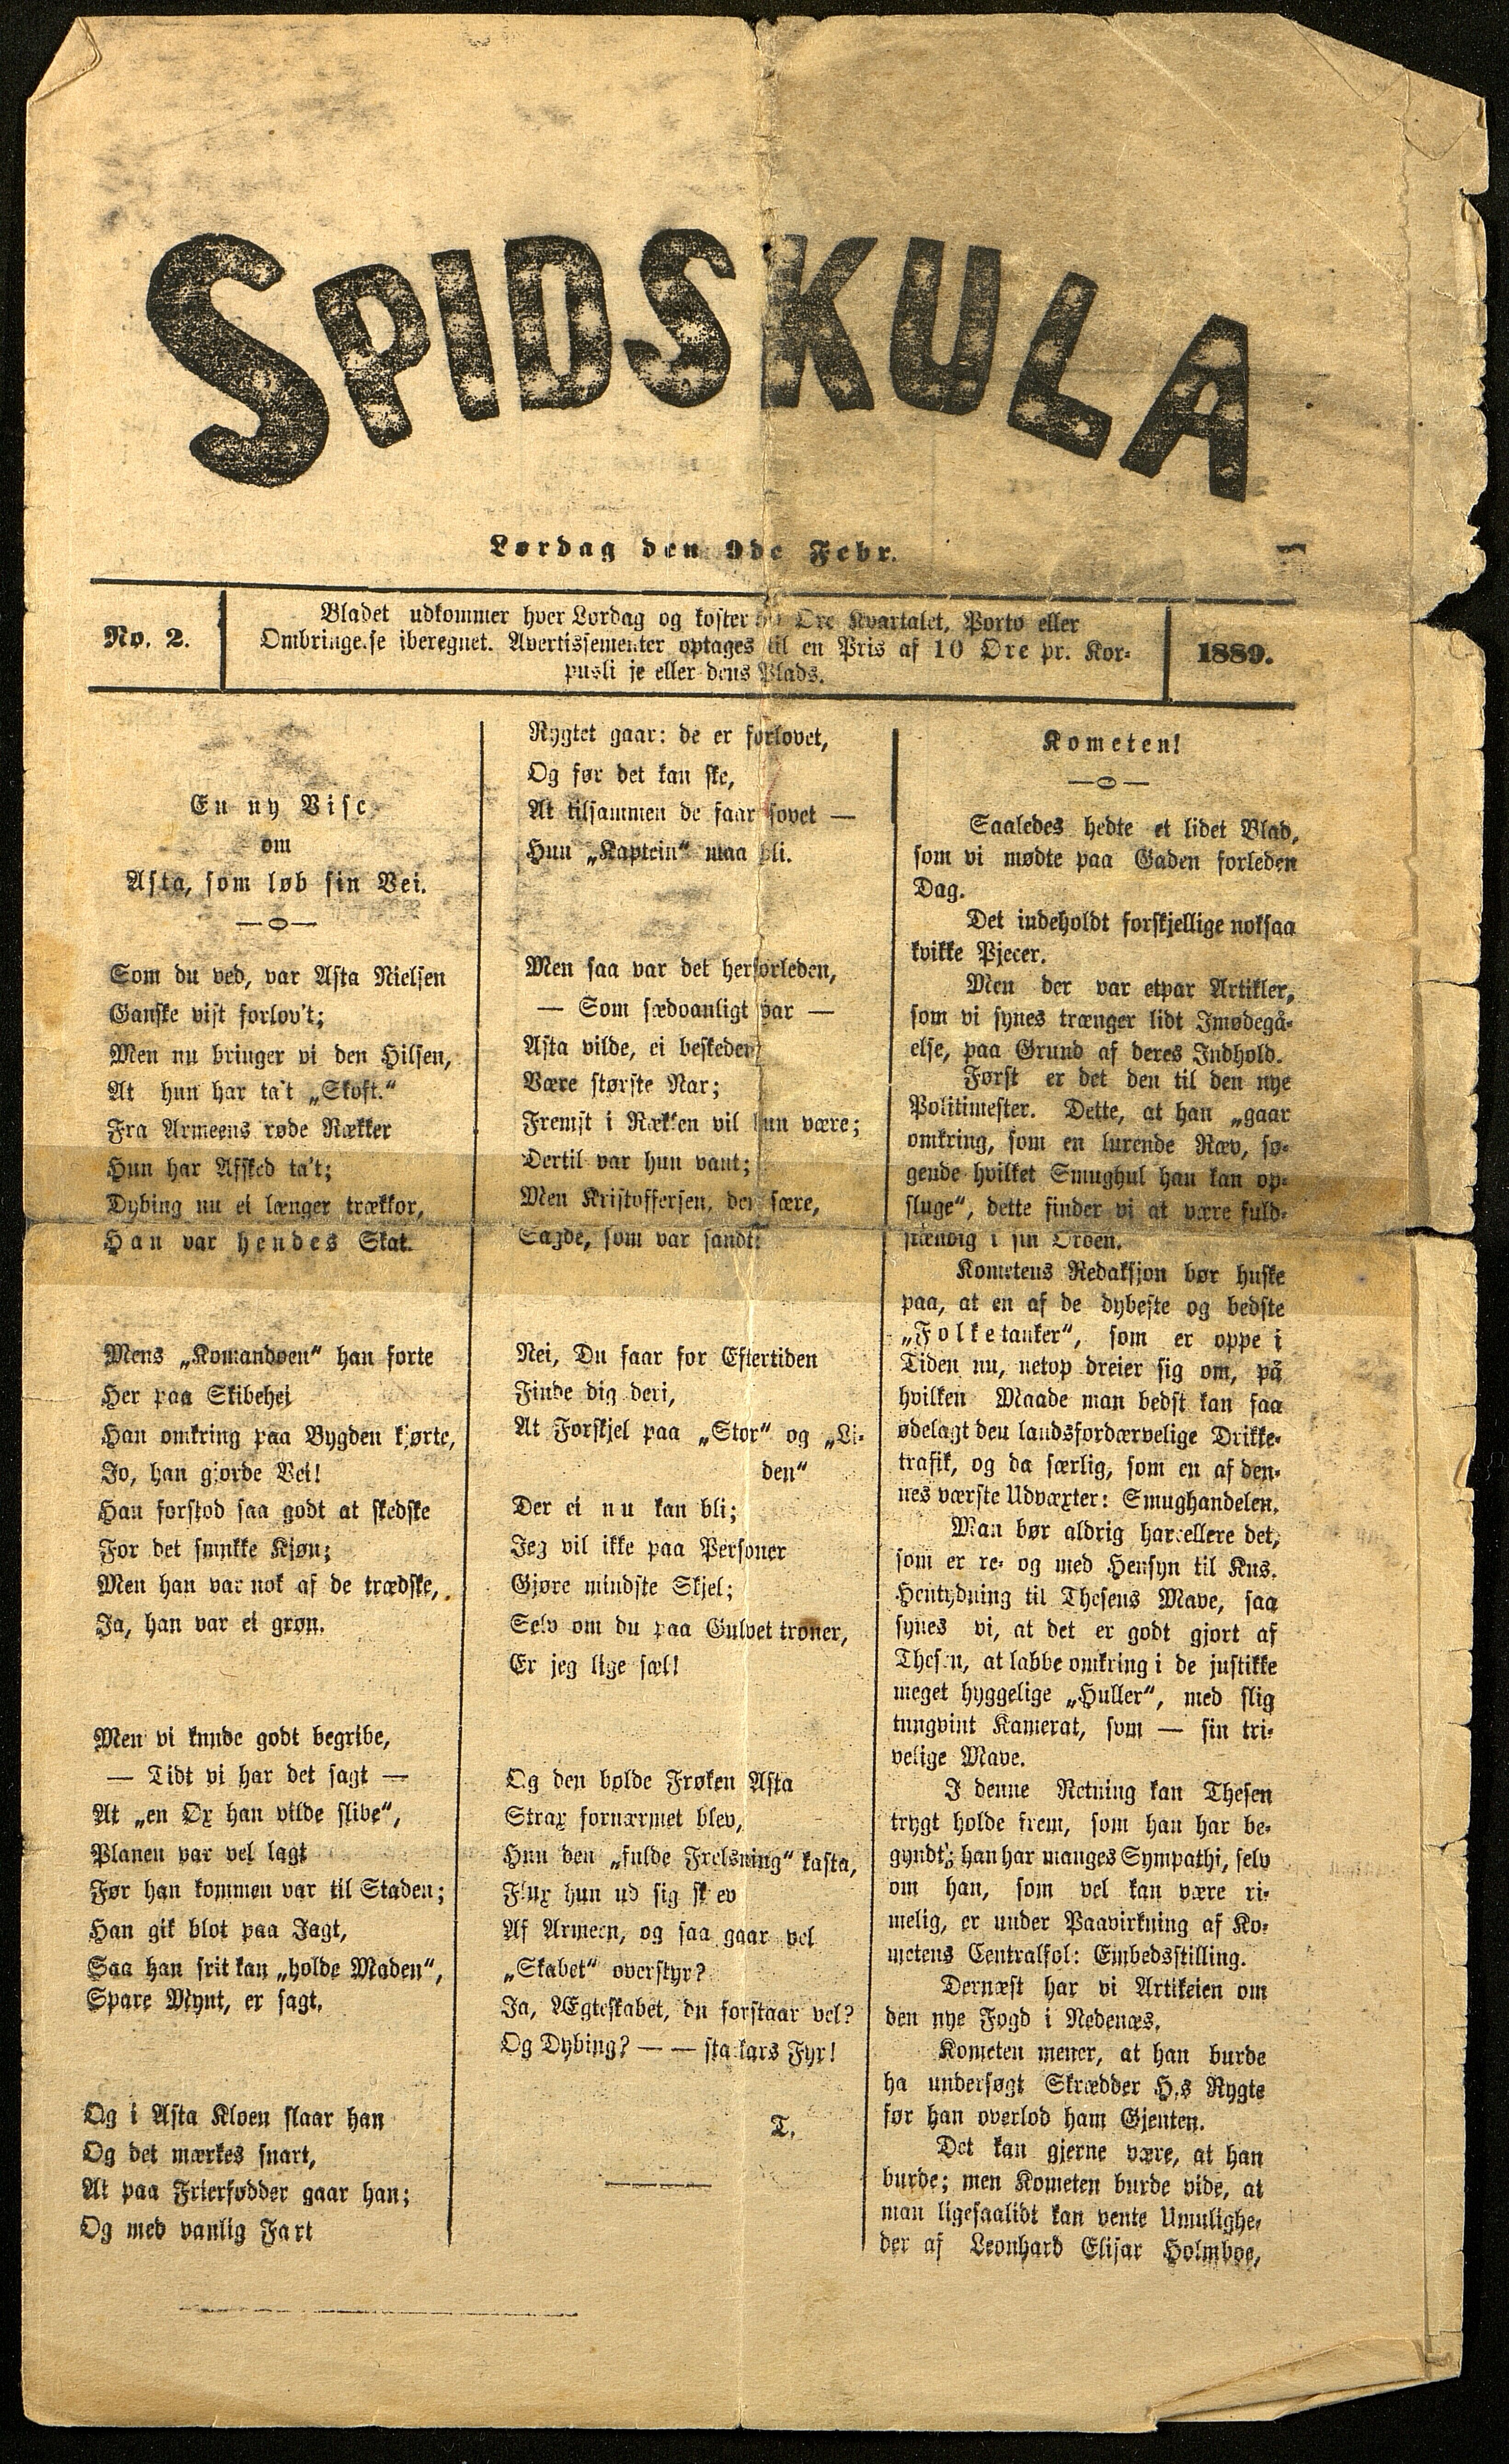 SPIDSKULA
Lørdag den 9de Febr.
No. 2.
Bladet udkommer hver Lørdag og koster Øre Kvartalet, Porto eller
Ombringe.se iberegnet. Avertissementer optages til en Pris af 10 Øre pr. Kor-
pusli je eller dens Plads.
1889.
En ny Vise
om
Asta, som løb sin Vei.
Som du ved, var Asta Nielsen
Ganske vist forlov't;
Men nu bringer vi den Hilsen,
At hun har ta't „Skoft.“
Fra Armeens røde Rækker
Hun har Afsked ta't;
Dybing nu ei længer trækkor,
Han var hendes Skat.
Mens „Komandoen“ han førte
Her paa Skibehei
Han omkring paa Bygden kjørte,
Jo, han gjorde Vei!
Han forstod saa godt at skedske
For det smukke Kjøn;
Men han var nok af de trædske,
Ja, han var ei grøn.
Men vi kunde godt begribe,
— Tidt vi har det sagt —
At „en Ox han vilde slibe“,
Planen var vel lagt
Før han kommen var til Staden;
Han gik blot paa Jagt,
Saa han frit kan „holde Maden“,
Spare Mynt, er sagt.
Og i Asta Kloen slaar han
Og det mærkes snart,
At paa Frierfødder gaar han;
Og med vanlig Fart
Rygtet gaar: de er forlovet,
Og før det kan ske,
At tilsammen de faar sovet —
Hun „Kaptein“ maa bli.
Men saa var det herforleden,
— Som sædvanligt var —
Asta vilde, ei beskeden
Være største Nar;
Fremst i Rækken vil hun være;
Dertil var hun vant;
Men Kristoffersen, den sære,
Sagde, som var sandt:
Nei, Du faar for Eftertiden
Finde dig deri,
At Forskjel paa „Stor“ og „Li-
den“
Der ei nu kan bli;
Jeg vil ikke paa Personer
Gjøre mindste Skjel;
Selv om du paa Gulvet troner,
Er jeg lige sæl!
Og den bolde Frøken Asta
Strax fornærmet blev,
Hun den „fulde Frelsning“ kasta,
Flux hun ud sig sk ev
Af Armeen, og saa gaar vel
„Skabet“ overstyr?
Ja, Ægteskabet, du forstaar vel?
Og Dybing? — — sta kars Fyr!
T.
Kometen!
Saaledes hedte et lidet Blad,
som vi mødte paa Gaden forleden
Dag.
Det indeholdt forskjellige noksaa
kvikke Pjecer.
Men der var etpar Artikler,
som vi synes trænger lidt Imødegå-
else, paa Grund af deres Indhold.
Først er det den til den nye
Politimester. Dette, at han „gaar
omkring, som en lurende Ræv, sø-
gende hvilket Smughul han kan op-
sluge“, dette finder vi at være fuld-
stændig i sin Orden.
Kometens Redaksjon bør huske
paa, at en af de dybeste og bedste
„Folketanker“, som er oppe i
Tiden nu, netop dreier sig om, på
hvilken Maade man bedst kan faa
ødelagt den landsfordærvelige Drikke-
trafik, og da særlig, som en af den-
nes værste Udvæxter: Smughandelen.
Man bør aldrig harcellere det,
som er re- og med Hensyn til Kns.
Hentydning til Thesens Mave, saa
synes vi, at det er godt gjort af
Thesen, at labbe omkring i de justikke
meget hyggelige „Huller“, med slig
tungvint Kamerat, som — sin tri-
velige Mave.
I denne Retning kan Thesen
trygt holde frem, som han har be-
gyndt; han har manges Sympathi, selv
om han, som vel kan være ri-
melig, er under Paavirkning af Ko-
metens Centralsol: Embedsstilling.
Dernæst har vi Artikelen om
den nye Fogd i Nedenæs.
Kometen mener, at han burde
ha undersøgt Skrædder H.s Rygte
før han overlod ham Gjenten.
Det kan gjerne være, at han
burde; men Kometen burde vide, at
man ligesaalidt kan vente Umulighe-
der af Leonhard Elisar Holmboe,